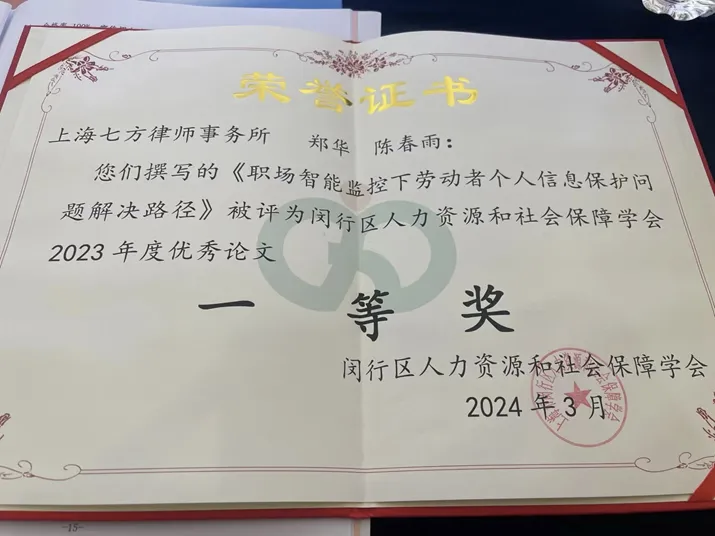 荣誉证书
上海七方律师事务所 郑华 陈春雨：
您们撰写的《职场智能监控下劳动者个人信息保护问
题解决路径》被评为闵行区人力资源和社会保障学会
2023 年度优秀论文
一等奖
闵行区人力资源和社会保障学会
2024 年 3 月
-15-